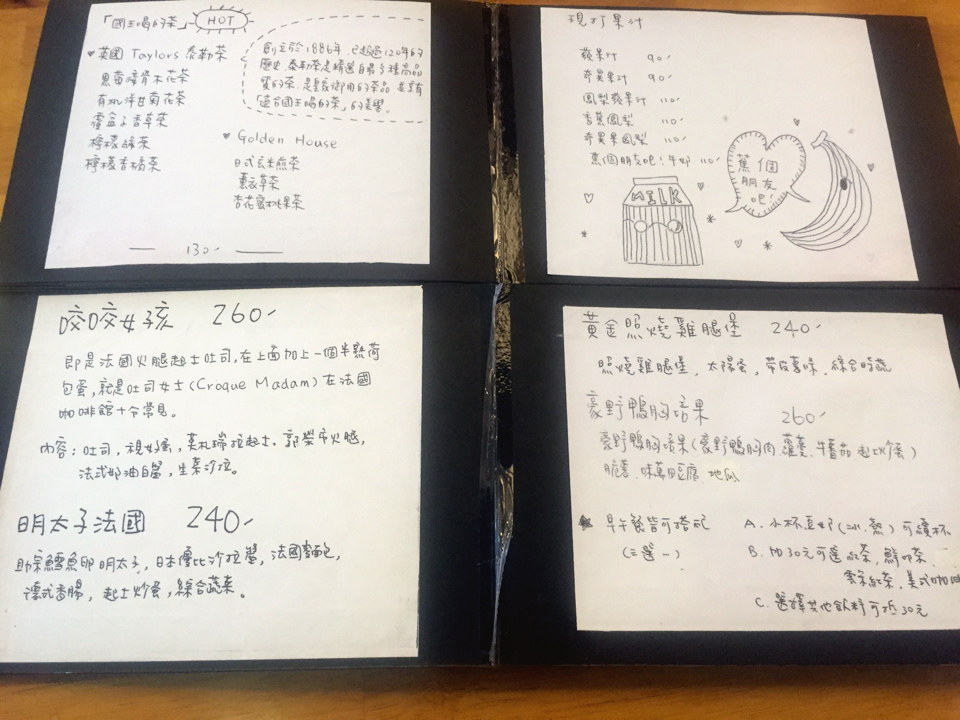 「國王喝的茶」 HOT
♥ 英國 Taylors 泰勒茶
創立於1886年.已超過120年的
歷史.泰勒茶是精選自易多種高品
質的茶.是皇室御用的茶品.並享有
「適合國王喝的茶」的美譽.
有機洋甘菊花茶
覆盆子香草茶
檸檬綠茶
檸檬香橘茶
♥ Golden House
日式玄米煎茶
薰衣草茶
杏花蜜桃果茶
130.-
現打果汁
蘋果汁 90.-
奇異果汁 90.-
鳳梨蘋果汁 110.-
香蕉鳳梨 110.-
奇異果鳳梨 110.-
蕉個朋友吧!牛奶 110.-
MILK
蕉個
朋友
吧!
咬咬女孩 260.-
即是法國火腿起士吐司,在上面加上一個半熟荷
包蛋,就是吐司女士(Croque Madam)在法國
咖啡館十分常見。
內容:吐司,視好蛋,莫札瑞拉起士.郭榮市火腿,
法式奶油白醬,生菜沙拉。
明太子法國 240.-
宗鱈魚卵明太子,日本優比沙拉醬,法國麵包,
德式香腸,起士炒蛋,綜合蔬菜。
黃金照燒雞腿堡 240.-
照燒雞腿堡.太陽蛋,帶皮薯條,綜合時蔬
豪野鴨胸培果 260.-
豪野鴨胸培果(豪野鴨胸肉.蘿蔓.牛番茄.起士炒蛋)
脆薯.味萬田豆腐.地瓜
早午餐皆可搭配
(三選一)
A. 小杯豆奶(冰.熱)可續杯
B. 加30元可選紅茶.鮮奶茶.
紅茶.美式咖啡
C. 選擇其他飲料可抵30元